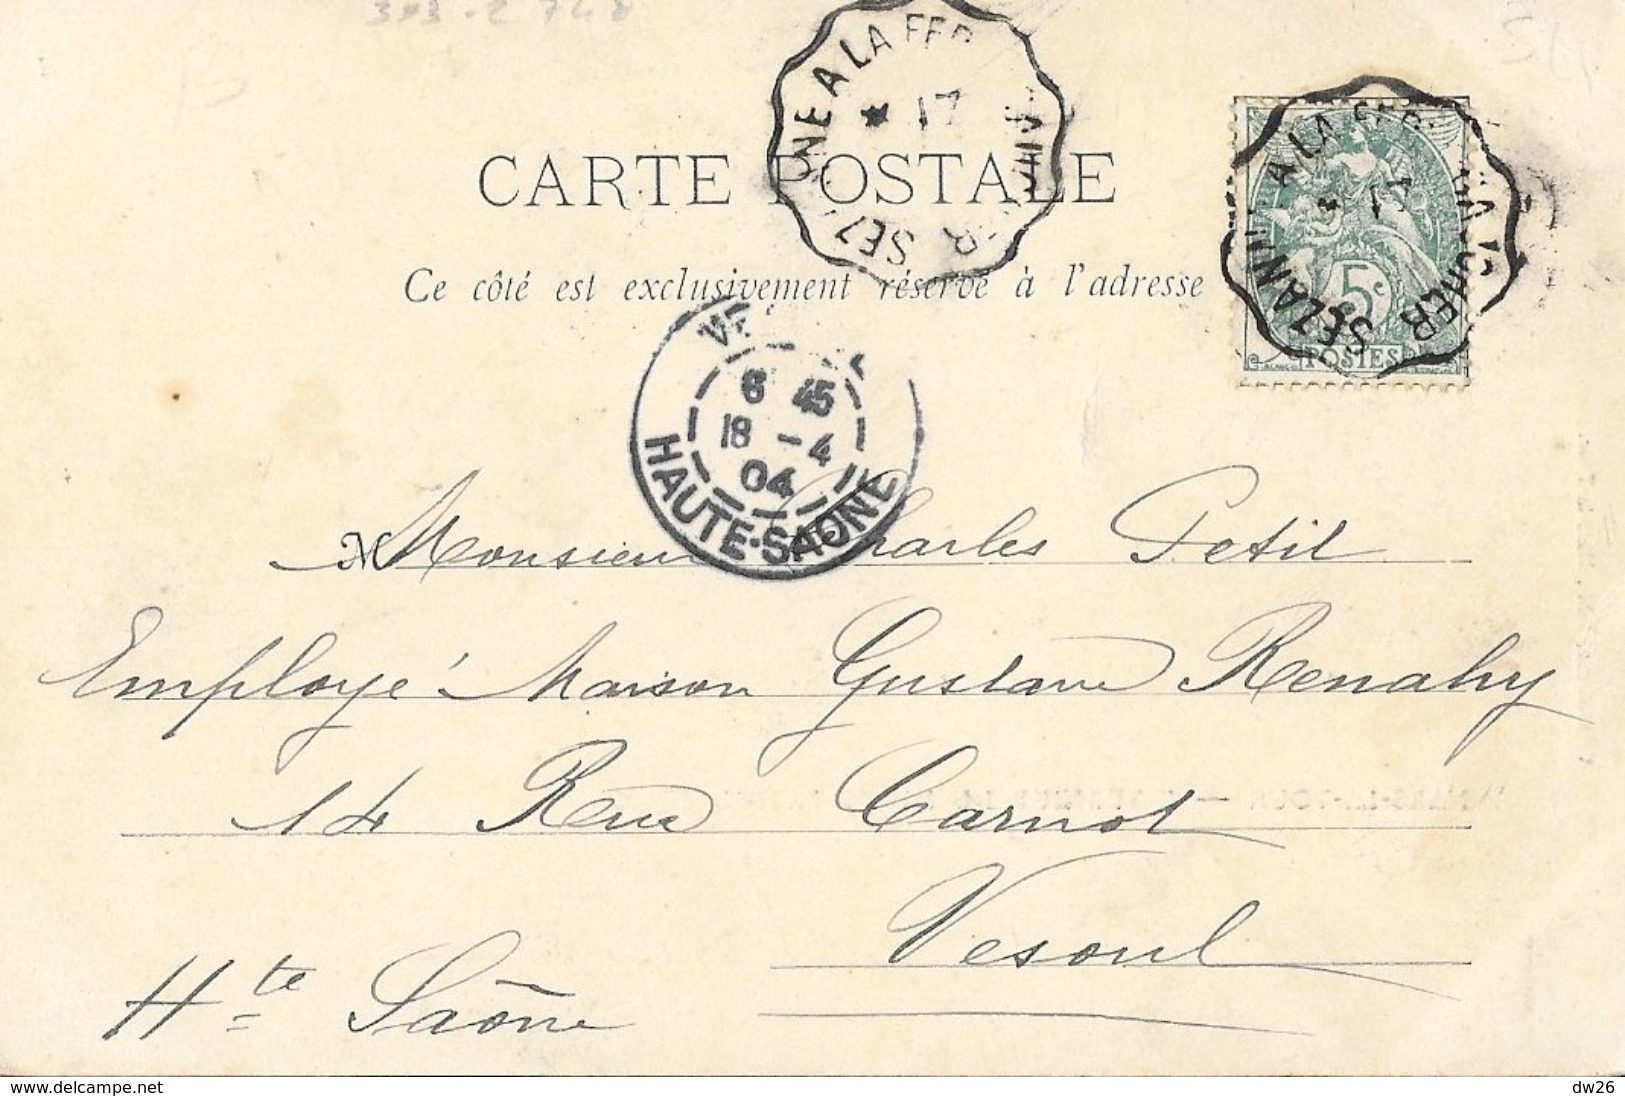 CARTE POSTALE
Ce côté est exclusivement réservé à l'adresse
SÉZANNE A LA FER
17
SÉZANNE A LA FER
5c
POSTES
6 45
18 - 4
04
HAUTE-SAONE
M Monsieur Charles Petit
Employé Maison Gustave Renahy
14 Rue Carnot
Vesoul
Hte Saône
delcampe.net
dw26